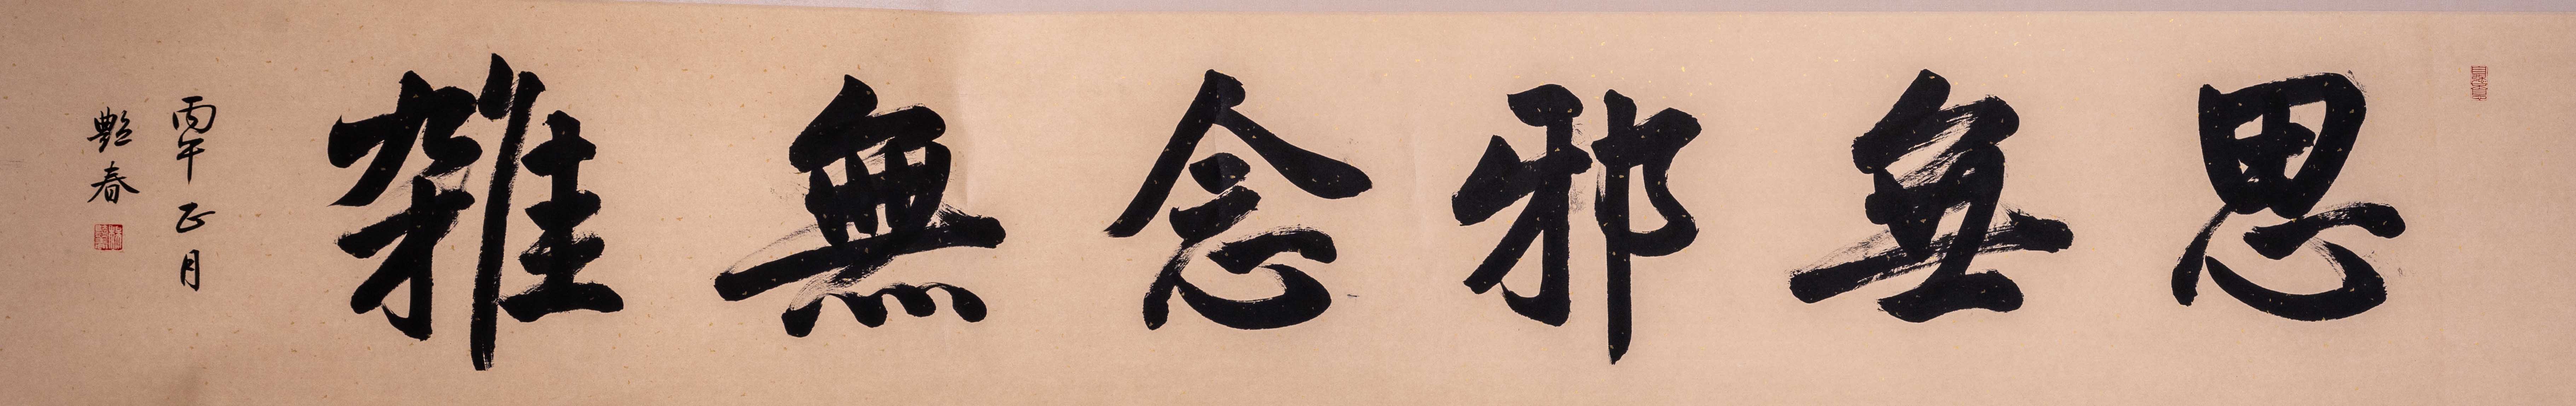 思無邪念無雜
丙午正月
艷春